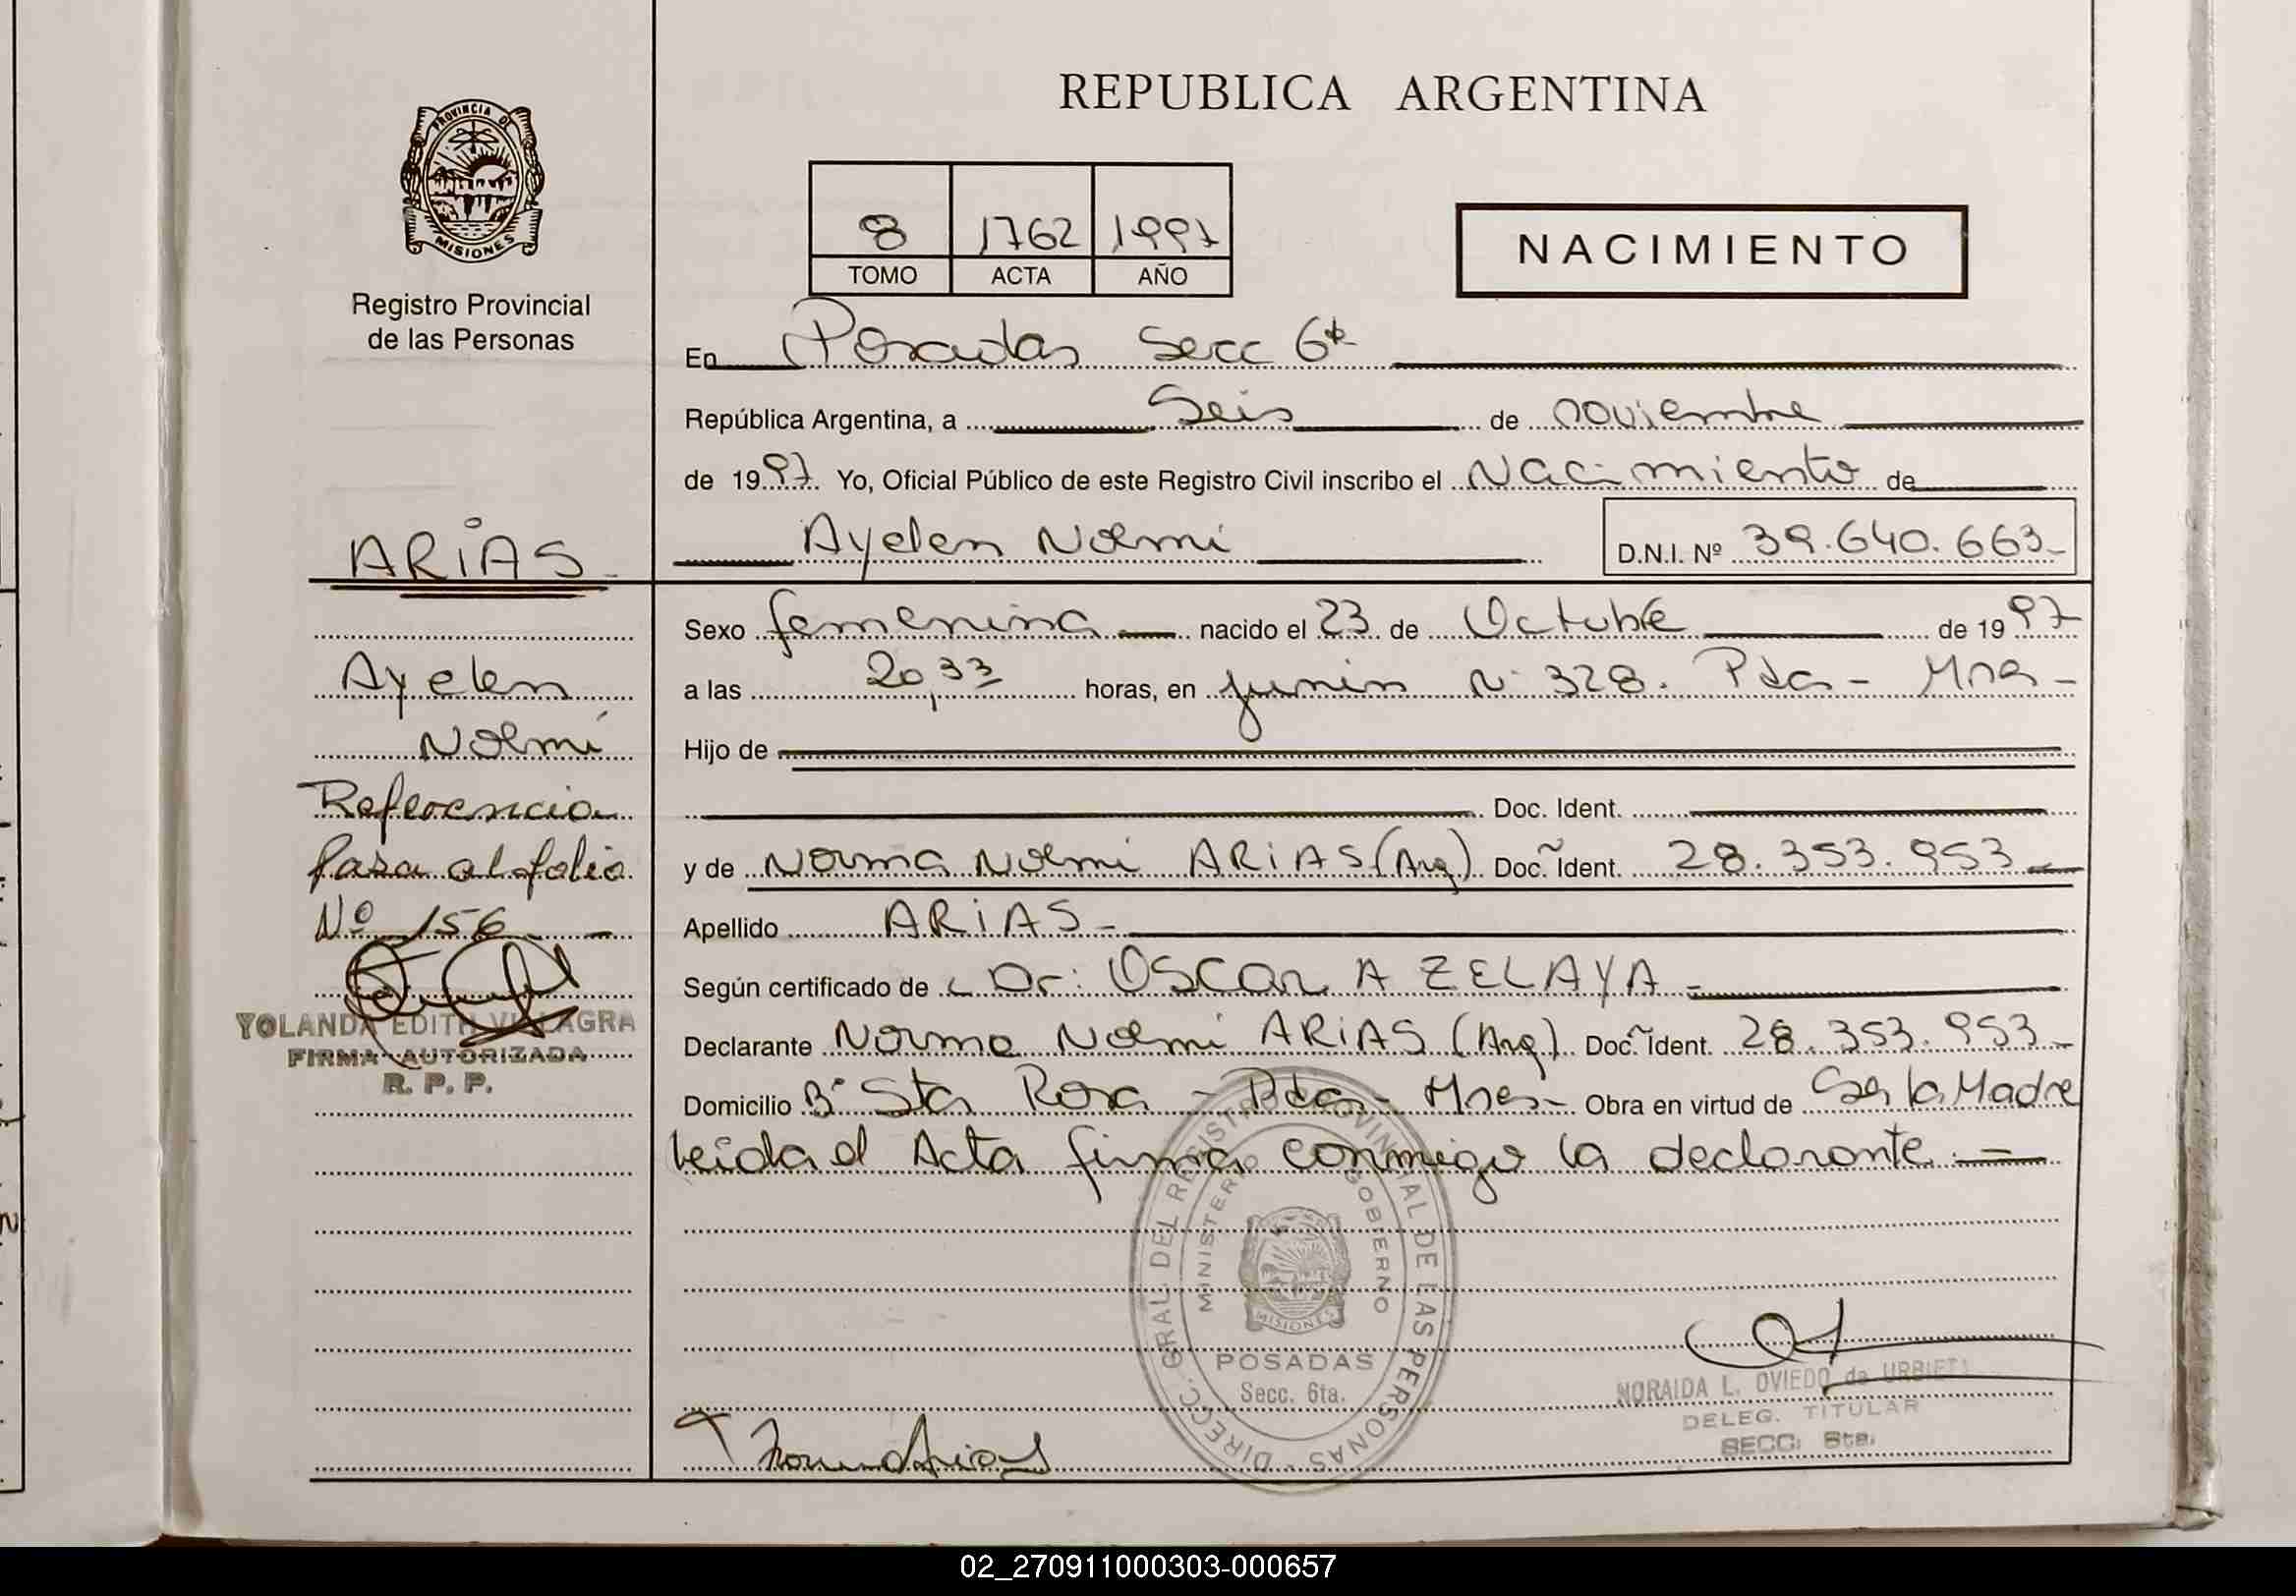 REPUBLICA ARGENTINA
PROVINCIA DE
MISIONES
Registro Provincial
de las Personas
8 1762 1997
TOMO ACTA AÑO
NACIMIENTO
En Posadas Secc 6ta
República Argentina, a Seis de noviembre
de 1997 Yo, Oficial Público de este Registro Civil inscribo el Nacimiento de
Ayelen Noemi D.N.I. Nº 39.640.663-
ARIAS
Ayelen
Noemí
Referencia
pasa al folio
Nº 156
YOLANDA EDITH VILLAGRA
FIRMA AUTORIZADA
R. P. P.
Sexo femenina nacido el 23 de Octubre de 1997
a las 20,33 horas, en Junin Nº 328. Pdas - Mnes -
Hijo de
Doc. Ident.
y de Norma Noemi ARIAS (Arg) Doc. Ident. 28.353.953
Apellido ARIAS -
Según certificado de Dr: OSCAR A ZELAYA -
Declarante Norma Noemi ARIAS (Arg) Doc. Ident. 28.353.953-
Domicilio Bº Sta Rosa - Pdas - Mnes - Obra en virtud de Ser la Madre
leida el Acta firma conmigo la declarante
DIRECC. GRAL. DEL REGISTRO PROVINCIAL DE LAS PERSONAS
MINISTERIO GOBIERNO
MISIONES
POSADAS
Secc. 6ta.
NORAIDA L. OVIEDO de URBIETA
DELEG. TITULAR
SECC: 6ta.
Norma Arias
02_270911000303-000657